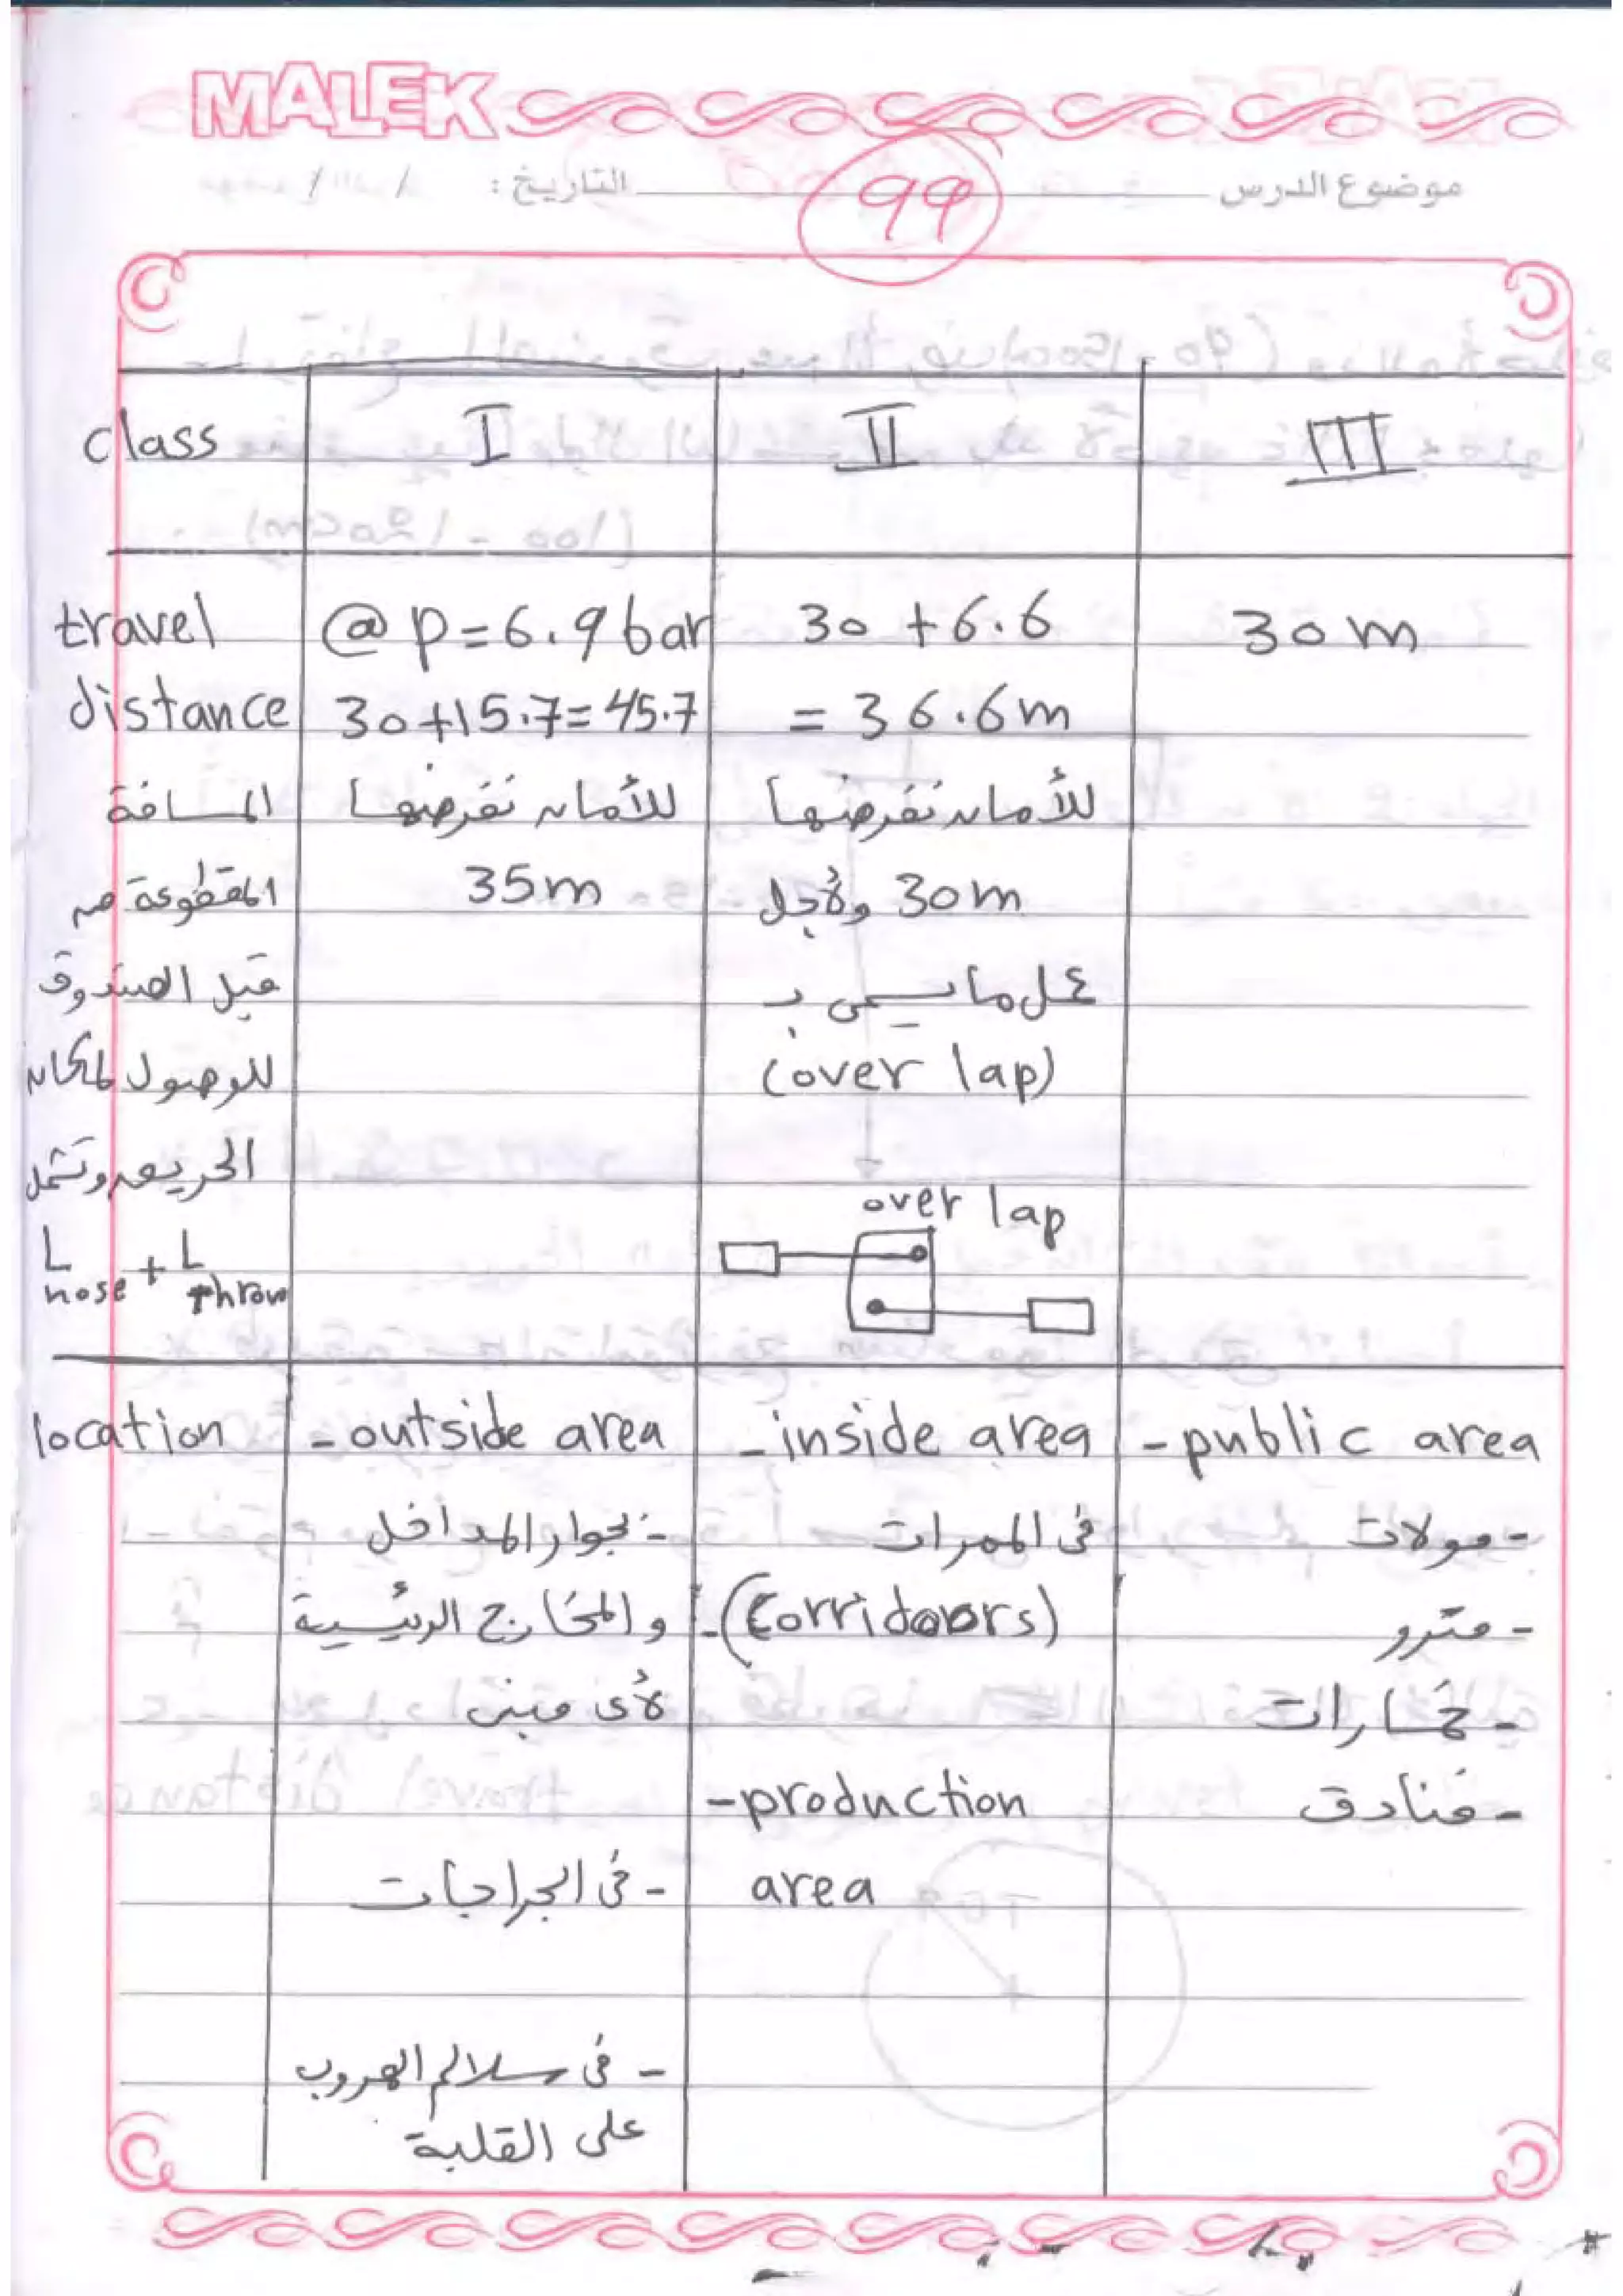 MALEK
موضوع الدرس التاريخ : / /
99
class I II III
travel @ p = 6.9 bar 30 + 6.6 30 m
distance 30+15.7=45.7 = 36.6 m
المسافة للأمان نفرضها للأمان نفرضها
المقطوعة من 35m 30m ولأجل
قبل الصندوق عمل ما يسمى بـ
للوصول لمكان (over lap)
الحريق وتشمل
over lap
L hose + L throw
location - outside area - inside area - public area
- بجوار المداخل فى الممرات - مولات
والمخارج الرئيسية - (corridoors) - مترو
لأى مبنى -
- production - فنادق
- فى الجراجات area
- فى سلالم الهروب
على القلبة